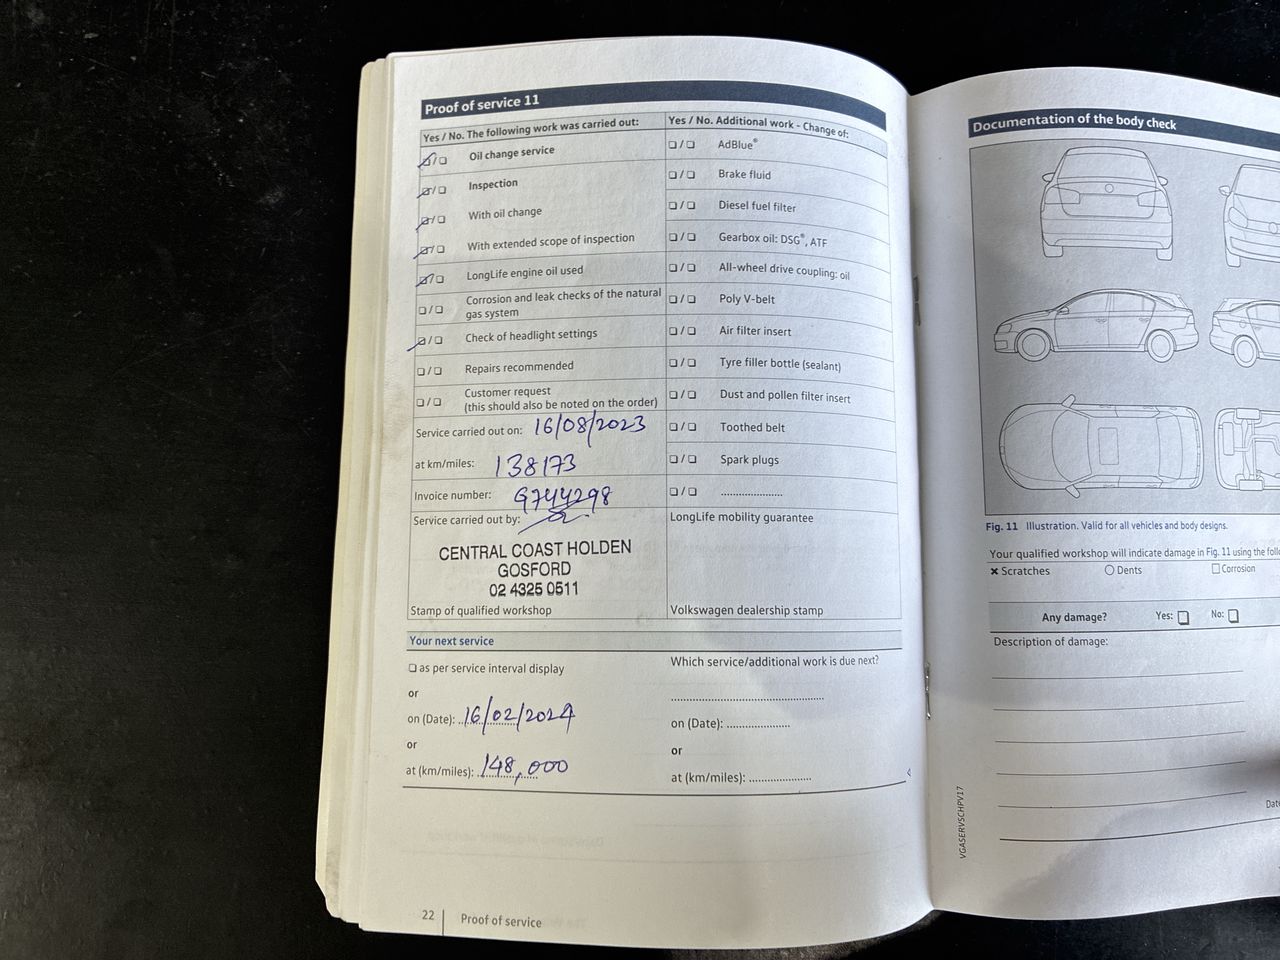 Proof of service 11
Yes / No. The following work was carried out:
Oil change service
Inspection
With oil change
With extended scope of inspection
LongLife engine oil used
Corrosion and leak checks of the natural
gas system
Check of headlight settings
Repairs recommended
Customer request
(this should also be noted on the order)
Service carried out on: 16/08/2023
at km/miles: 138173
Invoice number: G744298
Service carried out by:
CENTRAL COAST HOLDEN
GOSFORD
02 4325 0511
Stamp of qualified workshop
Yes / No. Additional work - Change of:
AdBlue®
Brake fluid
Diesel fuel filter
Gearbox oil: DSG®, ATF
All-wheel drive coupling: oil
Poly V-belt
Air filter insert
Tyre filler bottle (sealant)
Dust and pollen filter insert
Toothed belt
Spark plugs
....................
LongLife mobility guarantee
Volkswagen dealership stamp
Your next service
as per service interval display
or
on (Date): 16/02/2024
or
at (km/miles): 148,000
Which service/additional work is due next?
on (Date): ....................
or
at (km/miles): ....................
22 Proof of service
Documentation of the body check
Fig. 11 Illustration. Valid for all vehicles and body designs.
Your qualified workshop will indicate damage in Fig. 11 using the
Scratches Dents Corrosion
Any damage? Yes: No:
Description of damage:
VGASERVSCHPV17